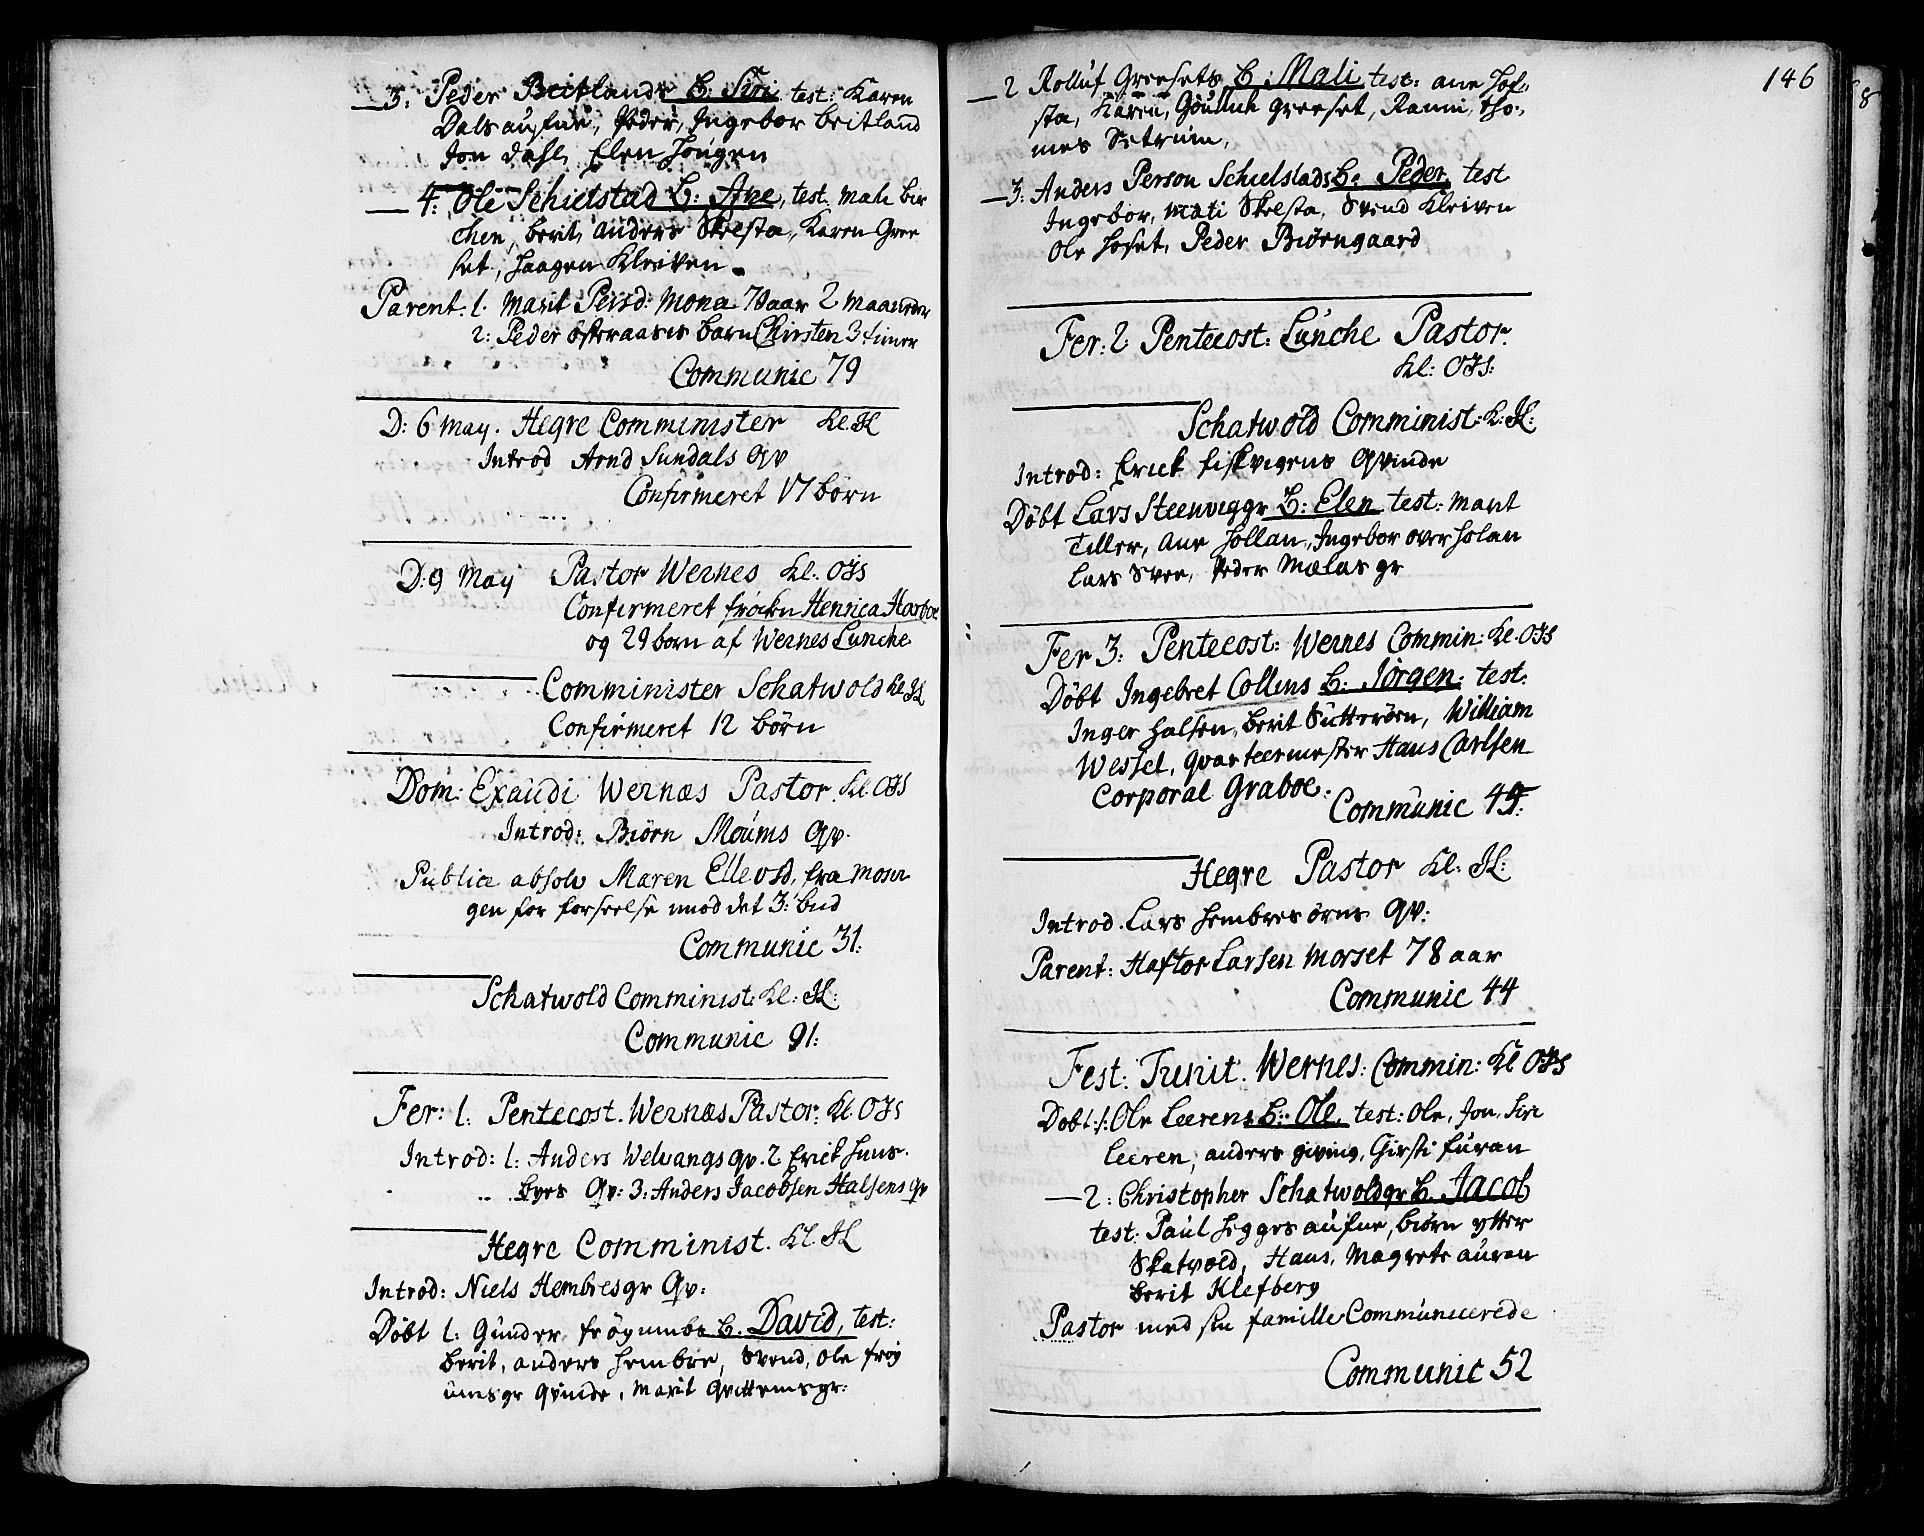 — 3: Peder Breitlands B: Siri test: Karen
Dalsaufne, Peder, Ingebor breitland
Jon dahl, Elen hougen
— 4: Ole Schielstad B: Ane, test. Mali bir
chen, berit, anders Skelsta, Karen Gree
set, haagen Kleiven.
Parent. 1. Marit Persd: Mona 70 aar 2 maaneder
2: Peder österaases barn Chirsten 3 timer
Communic 79
D: 6 May. Hegre Comminister Kl. JL
Introd Arnd Sundals Qv
Confirmeret 17 børn
D: 9 May Pastor Wernes Kl. OJS
Confirmeret frøcken Henrica Harboe
og 29 børn af Wernes Lunche
Comminister Schatwold Kl JL
Confirmeret 12 børn
Dom: Exaudi Wernæs Pastor. Kl OJS
Introd: Biørn Moums Qv.
Publice absolv Maren Ellevsd, fra Mosw
gen for forseelse imod det 3: bud
Communic 31:
Schatwold Comminist: Kl: JL:
Communic 91:
Fer: 1. Pentecost. Wernæs Pastor: Kl OJS
Introd: 1: Anders Welvangs qv. 2 Erick huus.
byes Qv: 3: Anders Jacobsen Halsens qv
Hegre Comminist. Kl. JL
Introd: Niels Hembresgr Qv:
Døbt 1: Gunder frøgumbs B. David, test:
berit, anders hembre, Svend, ole frøy
umsgr qvinde, Marit qvittemsgr:
146
— 2 Rolluf Greesets B: Mali test: ane hof,
sta, Karen, Goulluk greeset, Ranni, tho,
mes Setrum,
— 3: Anders Person Schielstads B: Peder, test
Ingebor, Mali Skelsta, Svend Kleiven
ole hoset, Peder Biørngaard
Fer: 2. Pentecost: Lunche Pastor.
Kl: OJS:
Schatwold Comminist: K: JL:
Introd: Erick fiskvigens Qvinde
Døbt Lars Steenviggr B: Elen test: Marit
Tiller, Ane hollan, Ingebor over holan
Lars Sven, Peder Mælasgr
Fer 3: Pentecost: Wernes Commin: Kl. OJS
Døbt Ingebret Collins B: Jörgen: test:
Inger halsen, berit Sutterøen, William
Wessel, qvarteermester Hans Carlsen
Corporal Graboe.
Communic 49:
Hegre Pastor Kl. JL:
Introd. Lars hembres ørns Qv:
Parent: Haftor Larsen Morset 78 aar
Communic 44
Fest: Trinit. Wernes: Commin: Kl OJS
Døbt: 1: Ole Leerens B: Ole. test: Ole, Jon, Siri
Leeren, anders giving, Girsti furan
— 2: Christopher Schatwoldgr B. Jacob
test: Paul hegges aufne, biørn ytter
Skatvold, Hans, Magrete auran
berit Klefberg
Pastor med sin famille Communicerede
Communic 52